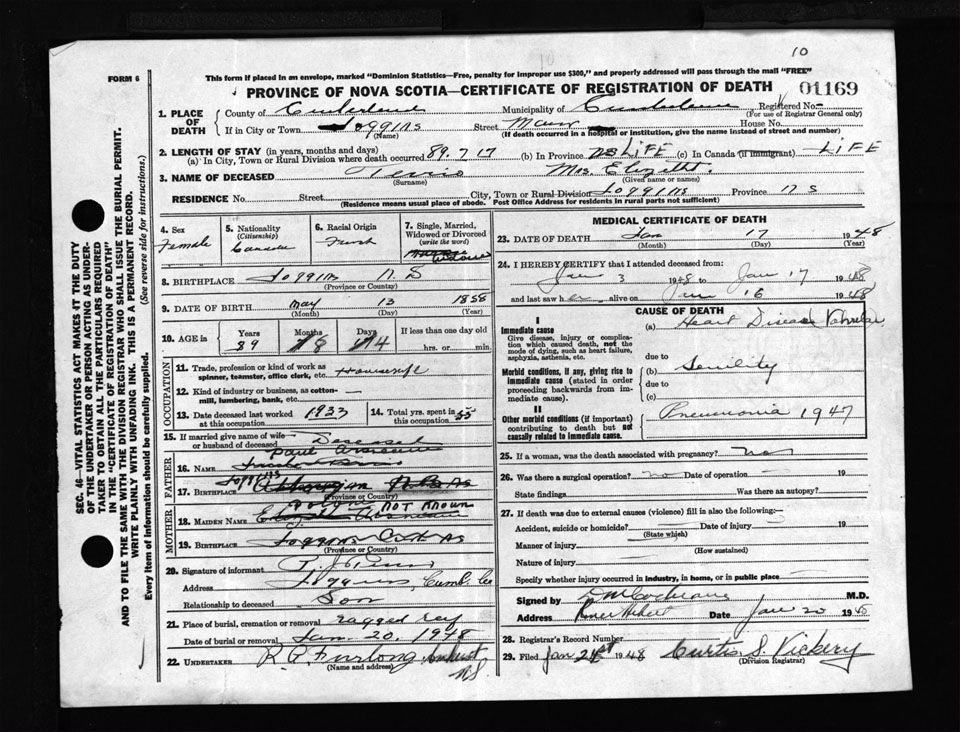 10
FORM 6
This form if placed in an envelope, marked "Dominion Statistics—Free, penalty for improper use $300," and properly addressed will pass through the mail "FREE"
PROVINCE OF NOVA SCOTIA—CERTIFICATE OF REGISTRATION OF DEATH 01169
1. PLACE OF DEATH County of Cumberland Municipality of Cumberland Registered No.
(For use of Registrar General only)
If in City or Town Joggins Street Main House No.
(Name) (If death occurred in a hospital or institution, give the name instead of street and number)
2. LENGTH OF STAY (in years, months and days)
(a) In City, Town or Rural Division where death occurred 89.7.17 (b) In Province NS LIFE (c) In Canada (if immigrant) LIFE
3. NAME OF DECEASED Mrs. Elizabeth
(Surname) (Given name or names)
RESIDENCE No. Street City, Town or Rural Division Joggins Province N S
(Residence means usual place of abode. Post Office Address for residents in rural parts not sufficient)
4. Sex Female
5. Nationality (Citizenship) Canada
6. Racial Origin French
7. Single, Married, Widowed or Divorced (write the word) Widow
8. BIRTHPLACE Joggins N. S
(Province or Country)
9. DATE OF BIRTH May 13 1858
(Month) (Day) (Year)
10. AGE in Years Months Days If less than one day old
89 8 4 hrs. or min.
OCCUPATION
11. Trade, profession or kind of work as spinner, teamster, office clerk, etc. Housewife
12. Kind of industry or business, as cotton-mill, lumbering, bank, etc.
13. Date deceased last worked at this occupation 1933
14. Total yrs. spent in this occupation 55
15. If married give name of wife or husband of deceased Deseased
FATHER
Paul
16. Name
Joggins
17. Birthplace
(Province or Country)
MOTHER
NOT KNOWN
18. Maiden Name
19. Birthplace Joggins
(Province or Country)
20. Signature of informant
Address Joggins, Cumb. Co
Relationship to deceased Son
21. Place of burial, cremation or removal ragged reef
Date of burial or removal Jan. 20, 1948
22. UNDERTAKER R. A. Furlong Amherst
(Name and address) N.S.
MEDICAL CERTIFICATE OF DEATH
23. DATE OF DEATH Jan 17 1948
(Month) (Day) (Year)
24. I HEREBY CERTIFY that I attended deceased from:
Jan 3 1948 to Jan 17 1948
and last saw her alive on Jan 16 1948
CAUSE OF DEATH
I
Immediate cause
Give disease, injury or complication which caused death, not the mode of dying, such as heart failure, asphyxia, asthenia, etc.
(a) Heart Disease Valvular
due to
Morbid conditions, if any, giving rise to immediate cause (stated in order proceeding backwards from immediate cause).
(b) Senility
due to
(c)
II
Other morbid conditions (if important) contributing to death but not causally related to immediate cause.
Pneumonia 1947
25. If a woman, was the death associated with pregnancy? no
26. Was there a surgical operation? no Date of operation 19
State findings Was there an autopsy?
27. If death due to external causes (violence) fill in also the following:—
Accident, suicide or homicide? Date of injury 19
(State which)
Manner of injury
(How sustained)
Nature of injury
Specify whether injury occurred in industry, in home, or in public place
Signed by D M Cochrane M.D.
Address River Hebert Date Jan 20 194
28. Registrar's Record Number
29. Filed Jan 21st 1948 Curtis S. Vickery
(Division Registrar)
SEC. 46—VITAL STATISTICS ACT MAKES IT THE DUTY
OF THE UNDERTAKER OR PERSON ACTING AS UNDERTAKER TO OBTAIN ALL THE PARTICULARS REQUIRED
IN THE "CERTIFICATE OF REGISTRATION OF DEATH"
AND TO FILE THE SAME WITH THE DIVISION REGISTRAR WHO SHALL ISSUE THE BURIAL PERMIT.
WRITE PLAINLY WITH UNFADING INK. THIS IS A PERMANENT RECORD.
Every item of information should be carefully supplied. (See reverse side for instructions.)